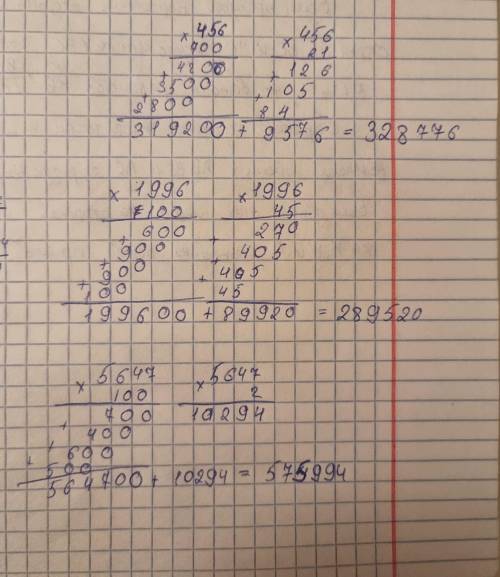 × 456 × 456
700 21
4200 + 126
+ 3500 + 105
+ 2800 84
319200 + 9576 = 328776
× 1996 × 1996
100 45
600 270
+ 900 + 405
+ 900 + 405
+ 100 45
199600 + 89920 = 289520
× 5647 × 5647
100 2
700 10294
+ 400
+ 600
+ 500
564700 + 10294 = 575994